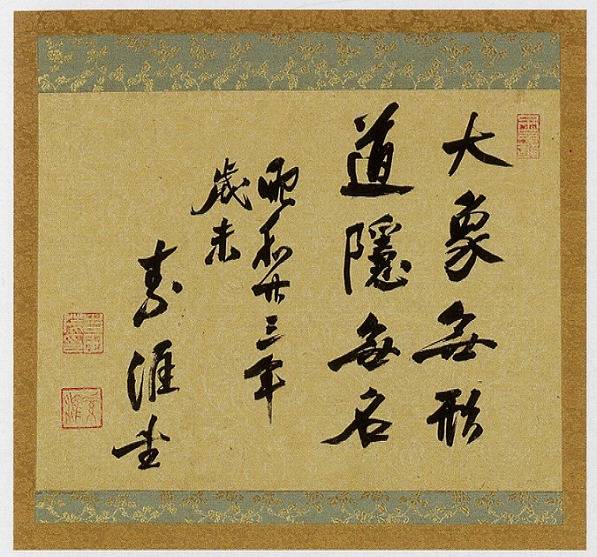 大象無形
道隱無名
昭和廿三年
歳末